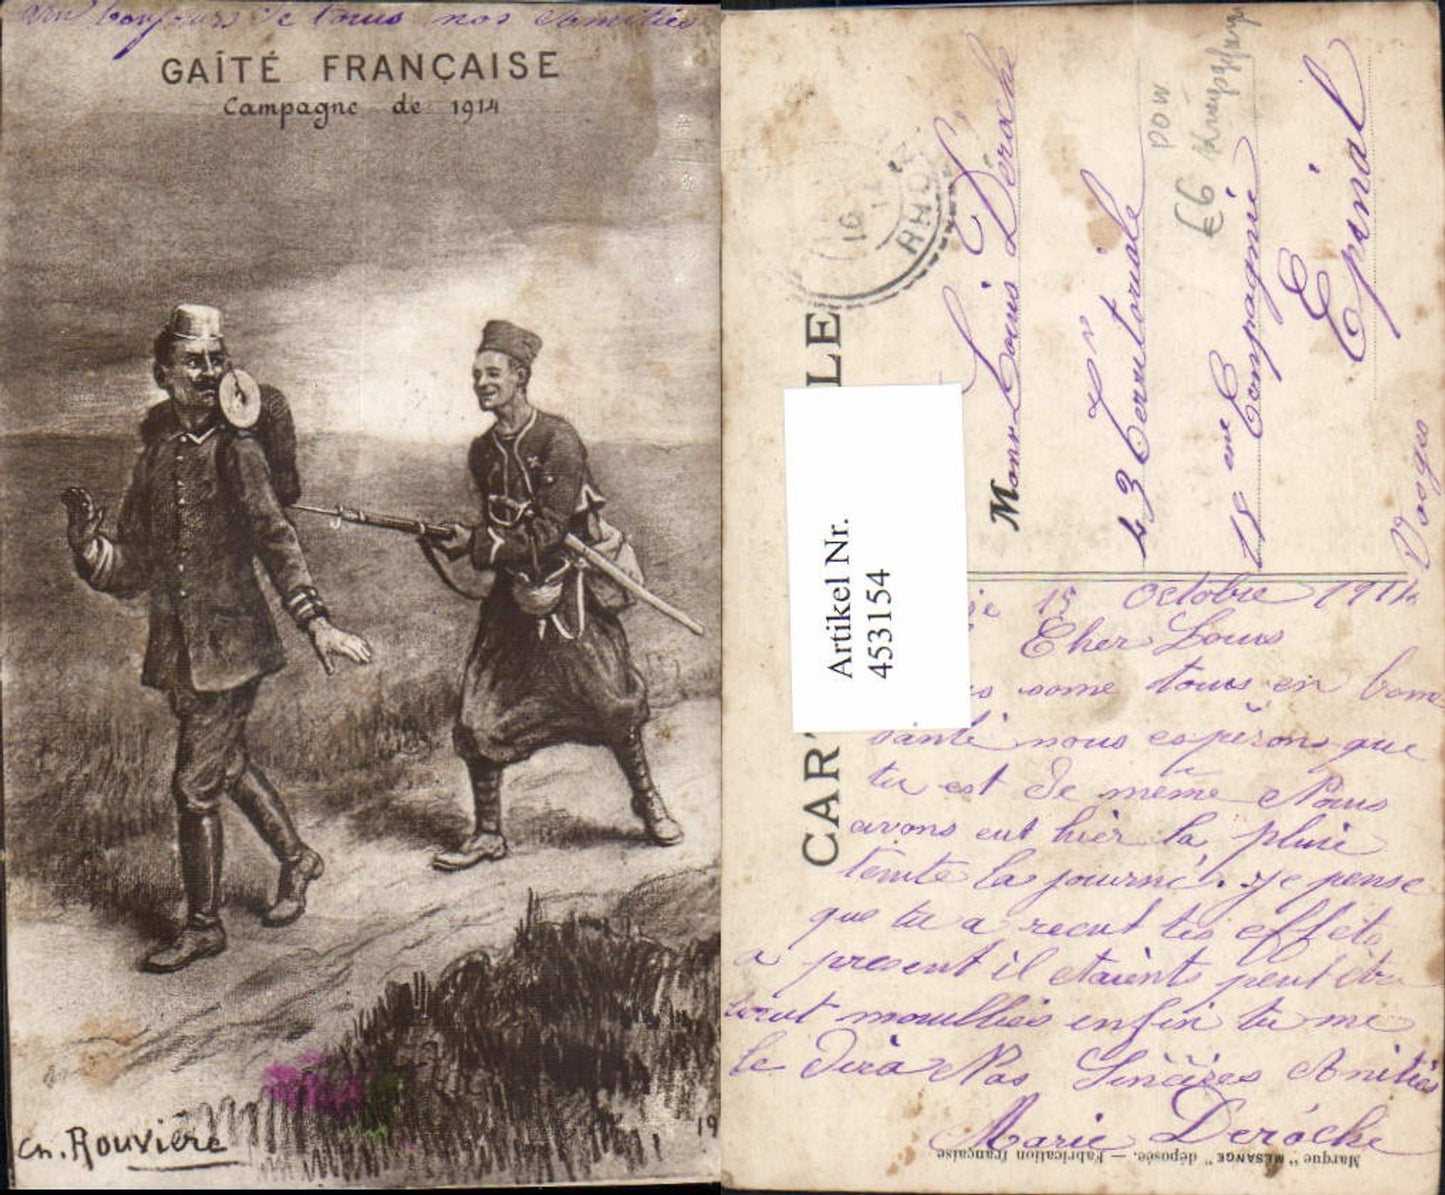 toujours de tous nos Amitiés
GAÎTÉ FRANÇAISE
Campagne de 1914
Ch. Rouvière
19
CAR
LE
Artikel Nr.
453154
16
RHO
Monr Louis Déroche
43 Territoriale
18 eme Compagnie
Epinal
Vosges
POW
€6
15 Octobre 1914
Cher Louis
some tous en bone
santé nous espérons que
tu est de même Nous
avons eut hier la pluie
toute la journé. Je pense
que tu a recut tes effets
a present il etaients peut être
mouilliés enfin tu me
le dira Nos Sincères Amitiés
Marie Deroche
Marque "MESANGE" déposée. — Fabrication française